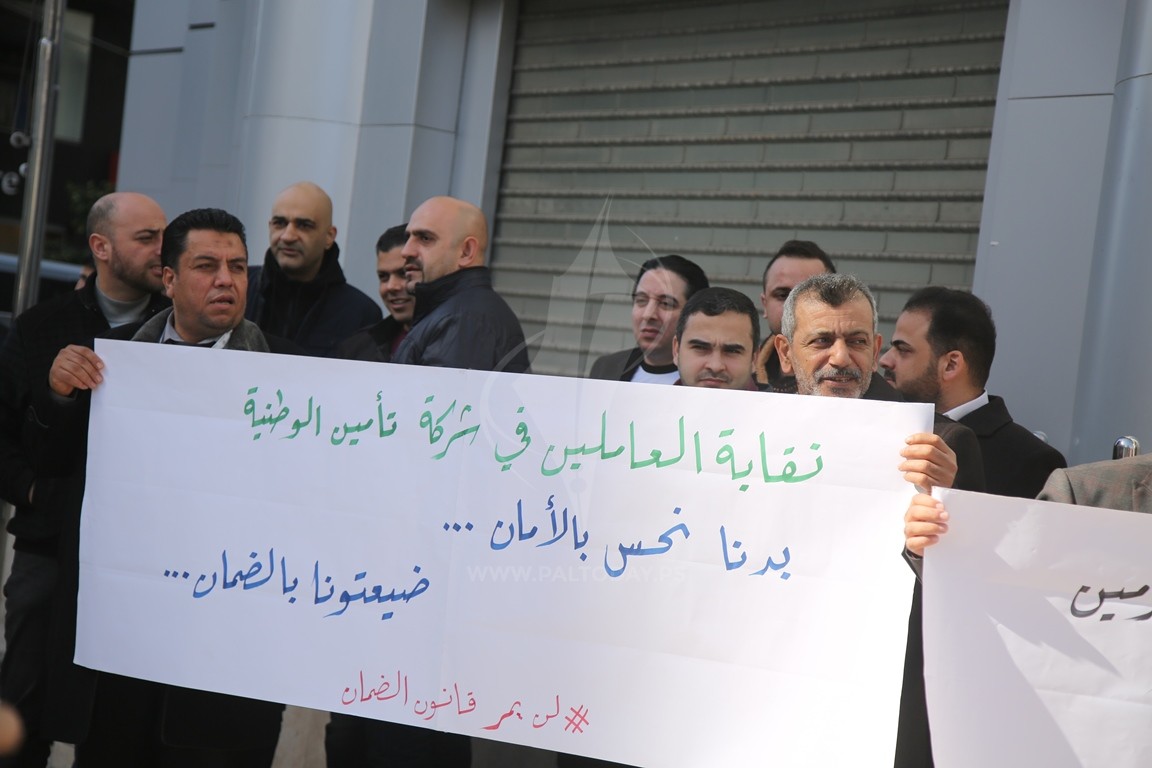 نقابة العاملين في شركة تأمين الوطنية
بدنا نحس بالأمان ...
ضيعتونا بالضمان ...
#لن يمر قانون الضمان
WWW.PALTODAY.PS